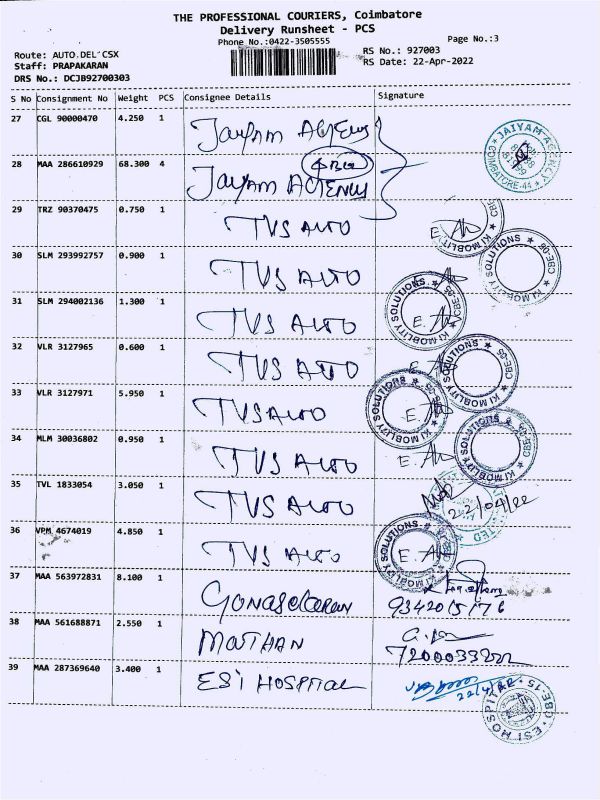 THE PROFESSIONAL COURIERS, Coimbatore
Delivery Runsheet - PCS
Phone No.:0422-3505555
Page No.:3
Route: AUTO.DEL CSX
Staff: PRAPAKARAN
DRS No.: DCJB92700303
RS No.: 927003
RS Date: 22-Apr-2022
S No Consignment No Weight PCS Consignee Details Signature
27 CGL 90000470 4.250 1 Jaiyam Agency
JAIYAM AGENCY COIMBATORE-44
28 MAA 286610929 68.300 4 Jaiyam AGENCY
29 TRZ 90370475 0.750 1 TVS AUTO
KI MOBLITY SOLUTIONS CBE-05
30 SLM 293992757 0.900 1 TVS AUTO
KI MOBLITY SOLUTIONS CBE-05
31 SLM 294002136 1.300 1 TVS AUTO
KI MOBLITY SOLUTIONS CBE-05
32 VLR 3127965 0.600 1 TVS AUTO
KI MOBLITY SOLUTIONS CBE-05
33 VLR 3127971 5.950 1 TVS AUTO
KI MOBLITY SOLUTIONS
34 MLM 30036802 0.950 1 TVS AUTO
KI MOBLITY SOLUTIONS CBE-05
35 TVL 1833054 3.050 1 TVS AUTO
22/04/22
36 VPM 4674019 4.850 1 TVS AUTO
KI MOBLITY SOLUTIONS
37 MAA 563972831 8.100 1 GUNASEKARAN
9342015176
38 MAA 561688871 2.550 1 MOTHAN
7200033222
39 MAA 287369640 3.400 1 ESI HOSPITAL
22/4/22
ESI HOSPITAL CBE-15